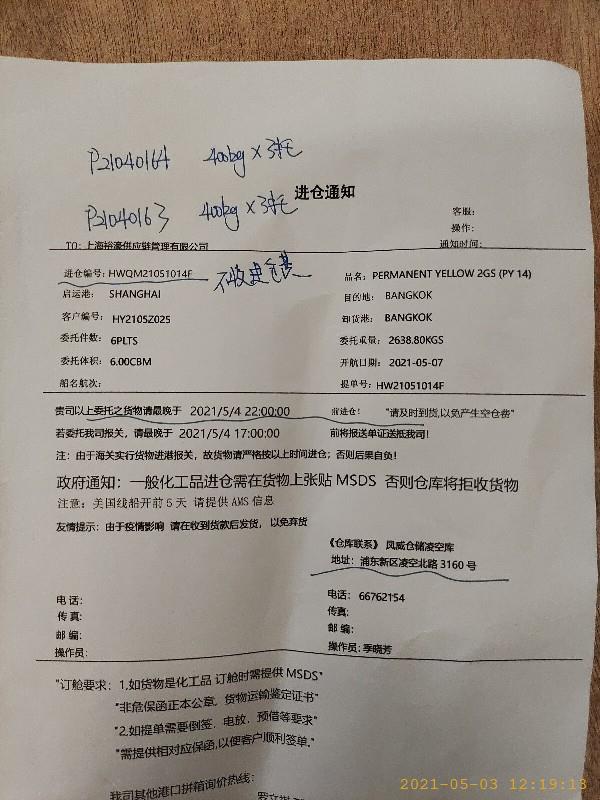 P21040164 400kg×3托
P21040163 400kg×3托
进仓通知
客服:
操作:
通知时间:
TO: 上海裕濠供应链管理有限公司
进仓编号: HWQM21051014F
品名: PERMANENT YELLOW 2GS (PY 14)
启运港: SHANGHAI
目的地: BANGKOK
客户编号: HY2105Z025
卸货港: BANGKOK
委托件数: 6PLTS
委托重量: 2638.80KGS
委托体积: 6.00CBM
开航日期: 2021-05-07
船名航次:
提单号: HW21051014F
贵司以上委托之货物请最晚于 2021/5/4 22:00:00 前进仓! "请及时到货,以免产生空仓费"
若委托我司报关, 请最晚于 2021/5/4 17:00:00 前将报送单证送抵我司!
注: 由于海关实行货物进港报关, 故货物请严格按以上时间进仓; 否则后果自负!
政府通知: 一般化工品进仓需在货物上张贴 MSDS 否则仓库将拒收货物
注意: 美国线船开前 5 天 请提供 AMS 信息
友情提示: 由于疫情影响 请在收到货款后发货, 以免弃货
《仓库联系》 凤威仓储凌空库
地址: 浦东新区凌空北路 3160 号
电话:
电话: 66762154
传真:
传真:
邮编:
邮编:
操作员:
操作员: 季晓芳
"订舱要求: 1,如货物是化工品 订舱时需提供 MSDS"
"非危保函正本公章, 货物运输鉴定证书"
"2.如提单需要倒签, 电放, 预借等要求"
"需提供相对应保函,以便客户顺利签单."
我司其他港口拼箱询价热线:
2021-05-03 12:19:13